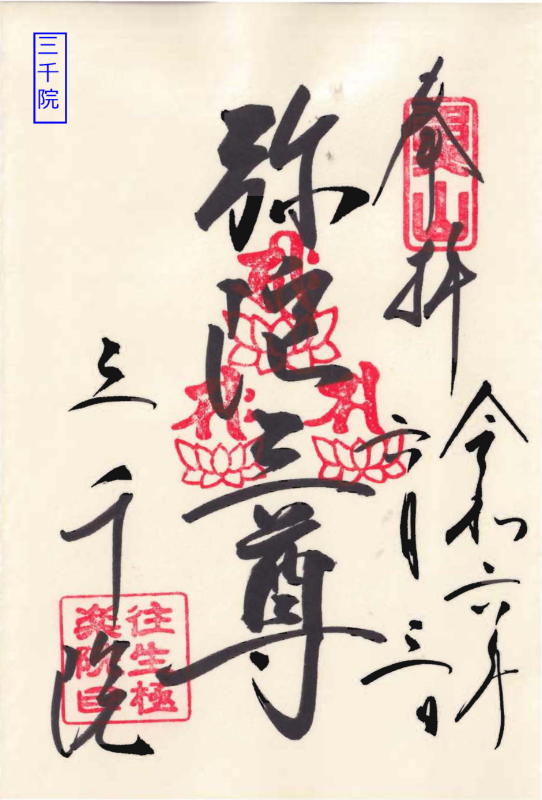 奉拝
令和六年
六月三日
弥陀三尊
三千院
三千院
往生極
楽院印